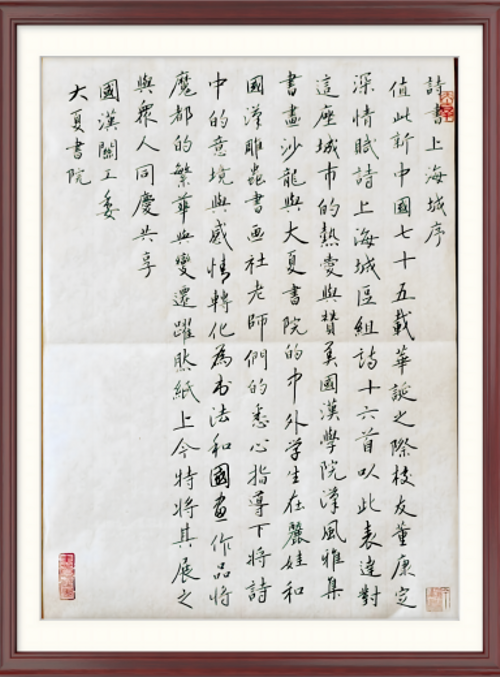 詩書上海城序
值此新中國七十五載華誕之際校友董康定
深情賦詩上海城區組詩十六首以此表達對
這座城市的熱愛與贊美國漢學院漢風雅集
書畫沙龍與大夏書院的中外学生在麗娃和
國漢雕蟲書画社老師們的悉心指導下將詩
中的意境與感情轉化為书法和國畫作品將
魔都的繁華與變遷躍然紙上今特將其展之
與衆人同慶共享
國漢關工委
大夏書院